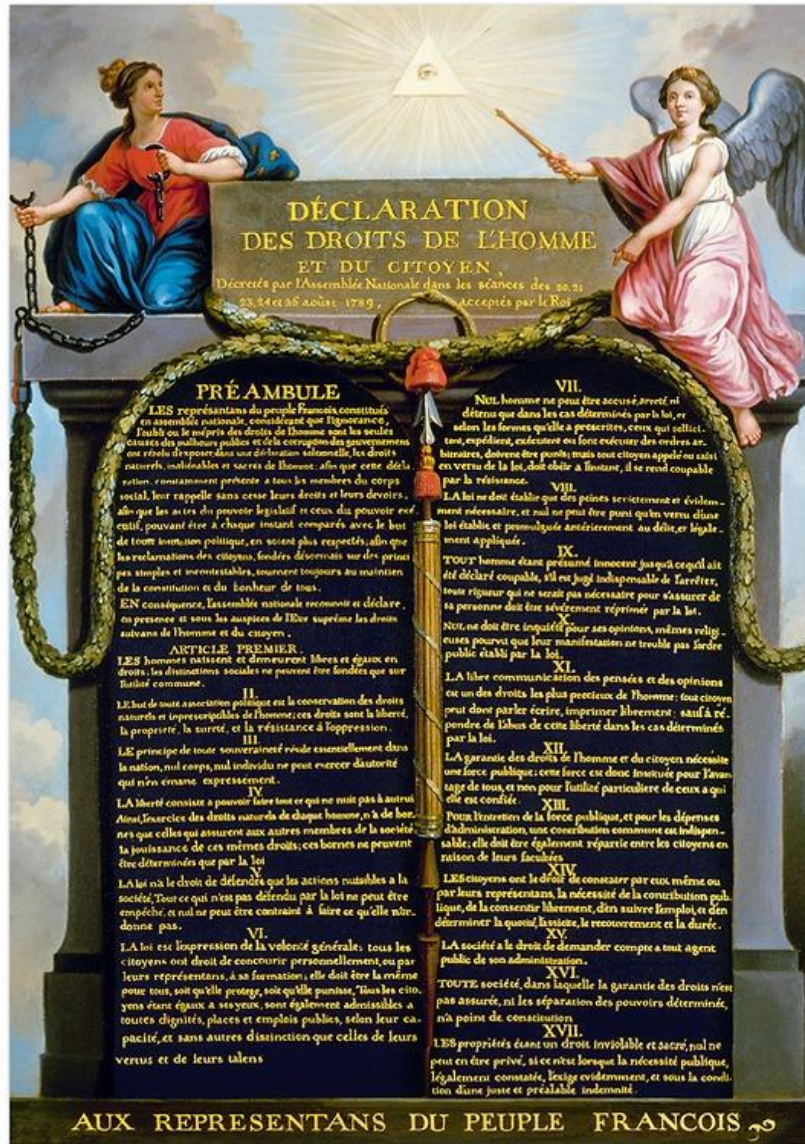 DÉCLARATION
DES DROITS DE L'HOMME
ET DU CITOYEN,
Décretés par l'Assemblée Nationale dans les séances des 20, 21
23, 24 et 26 août 1789, acceptés par le Roi
PRÉAMBULE
LES représentans du peuple Francois, constitués
en assemblée nationale, considérant que l'ignorance,
l'oubli ou le mépris des droits de l'homme sont les seules
causes des malheurs publics et de la corruption des gouvernemens
ont résolu d'exposer dans une déclaration solemnelle, les droits
naturels, inaliénables et sacrés de l'homme; afin que cette décla
ration, constamment présente a tous les membres du corps
social, leur rappelle sans cesse leurs droits et leurs devoirs,
afin que les actes du pouvoir legislatif et ceux du pouvoir exé
cutif, pouvant être a chaque instant comparés avec le but
de toute institution politique, en soient plus respectés; afin que
les reclamations des citoyens, fondées désormais sur des princi
pes simples et incontestables, tournent toujours au maintien
de la constitution et du bonheur de tous.
EN conséquence, l'assemblée nationale reconnoit et déclare,
en presence et sous les auspices de l'Etre suprême les droits
suivans de l'homme et du citoyen.
ARTICLE PREMIER.
LES hommes naissent et demeurent libres et égaux en
droits; les distinctions sociales ne peuvent être fondées que sur
l'utilité commune.
II.
LE but de toute association politique est la conservation des droits
naturels et inprescriptibles de l'homme; ces droits sont la liberté,
la propriété, la sureté, et la résistance à l'oppression.
III.
LE principe de toute souveraineté réside essentiellement dans
la nation, nul corps, nul individu ne peut exercer d'autorité
qui n'en émane expressement.
IV.
LA liberté consiste a pouvoir faire tout ce qui ne nuit pas à autrui
Ainsi, l'exercice des droits naturels de chaque homme, n'a de bor-
nes que celles qui assurent aux autres membres de la société
la jouissance de ces mêmes droits; ces bornes ne peuvent
être déterminées que par la loi
V.
LA loi n'a le droit de défendre que les actions nuisibles a la
société, Tout ce qui n'est pas défendu par la loi ne peut être
empêché, et nul ne peut être contraint à faire ce qu'elle n'or-
donne pas.
VI.
LA loi est l'expression de la volonté générale; tous les
citoyens ont droit de concourir personnellement, ou par
leurs représentans, à sa formation; elle doit être la même
pour tous, soit qu'elle protege, soit qu'elle punisse, Tous les cito-
yens étant égaux a ses yeux, sont également admissibles a
toutes dignités, places et emplois publics, selon leur ca-
pacité, et sans autres distinction que celles de leurs
vertus et de leurs talens
VII.
NUL homme ne peut être accusé, arreté, ni
détenu que dans les cas déterminés par la loi, et
selon les formes qu'elle a prescrites, ceux qui sollici-
tent, expédient, exécutent ou font exécuter des ordres ar-
bitraires, doivent être punis; mais tout citoyen appelé ou saisi
en vertu de la loi, doit obéir a l'instant, il se rend coupable
par la résistance.
VIII.
LA loi ne doit établir que des peines strictement et évidem-
ment nécessaire, et nul ne peut être puni qu'en vertu d'une
loi établie et promulguée antérierement au délit, et légale-
ment appliquée.
IX.
TOUT homme étant présumé innocent jusqu'à ce qu'il ait
été déclaré coupable, s'il est jugé indispensable de l'arrêter,
toute rigueur qui ne serait pas nécessaire pour s'assurer de
sa personne doit être sévèrement réprimée par la loi.
X.
NUL ne doit être inquiété pour ses opinions, mêmes relig-
euses pourvu que leur manifestation ne trouble pas l'ordre
public établi par la loi.
XI.
LA libre communication des pensées et des opinions
est un des droits les plus precieux de l'homme; tout citoyen
peut dont parler écrire, imprimer librement; sauf à ré-
pondre de l'abus de cette liberté dans les cas déterminés
par la loi.
XII.
LA garantie des droits de l'homme et du citoyen nécessite
une force publique; cette force est donc instituée pour l'avan-
tage de tous, et non pour l'utilité particuliere de ceux a qui
elle est confiée.
XIII.
POUR l'entretien de la force publique, et pour les dépenses
d'administration, une contribution commune est indispen-
sable; elle doit être également répartie entre les citoyens en
raison de leurs facultées
XIV.
LES citoyens ont le droit de constater par eux même ou
par leurs représentans, la nécessité de la contribution pub-
lique, de la consentir librement, d'en suivre l'emploi, et d'en
déterminer la quotité, l'assiette, le recouvrement et la durée.
XV.
LA société a le droit de demander compte a tout agent
public de son administration.
XVI.
TOUTE société, dans laquelle la garantie des droits n'est
pas assurée, ni les séparation des pouvoirs déterminée,
n'a point de constitution
XVII.
LES propriétés étant un droit inviolable et sacré, nul ne
peut en être privé, si ce n'est lorsque la nécessité publique,
légalement constatée, l'exige evidemment, et sous la condi-
tion d'une juste et préalable indemnité.
AUX REPRESENTANS DU PEUPLE FRANCOIS